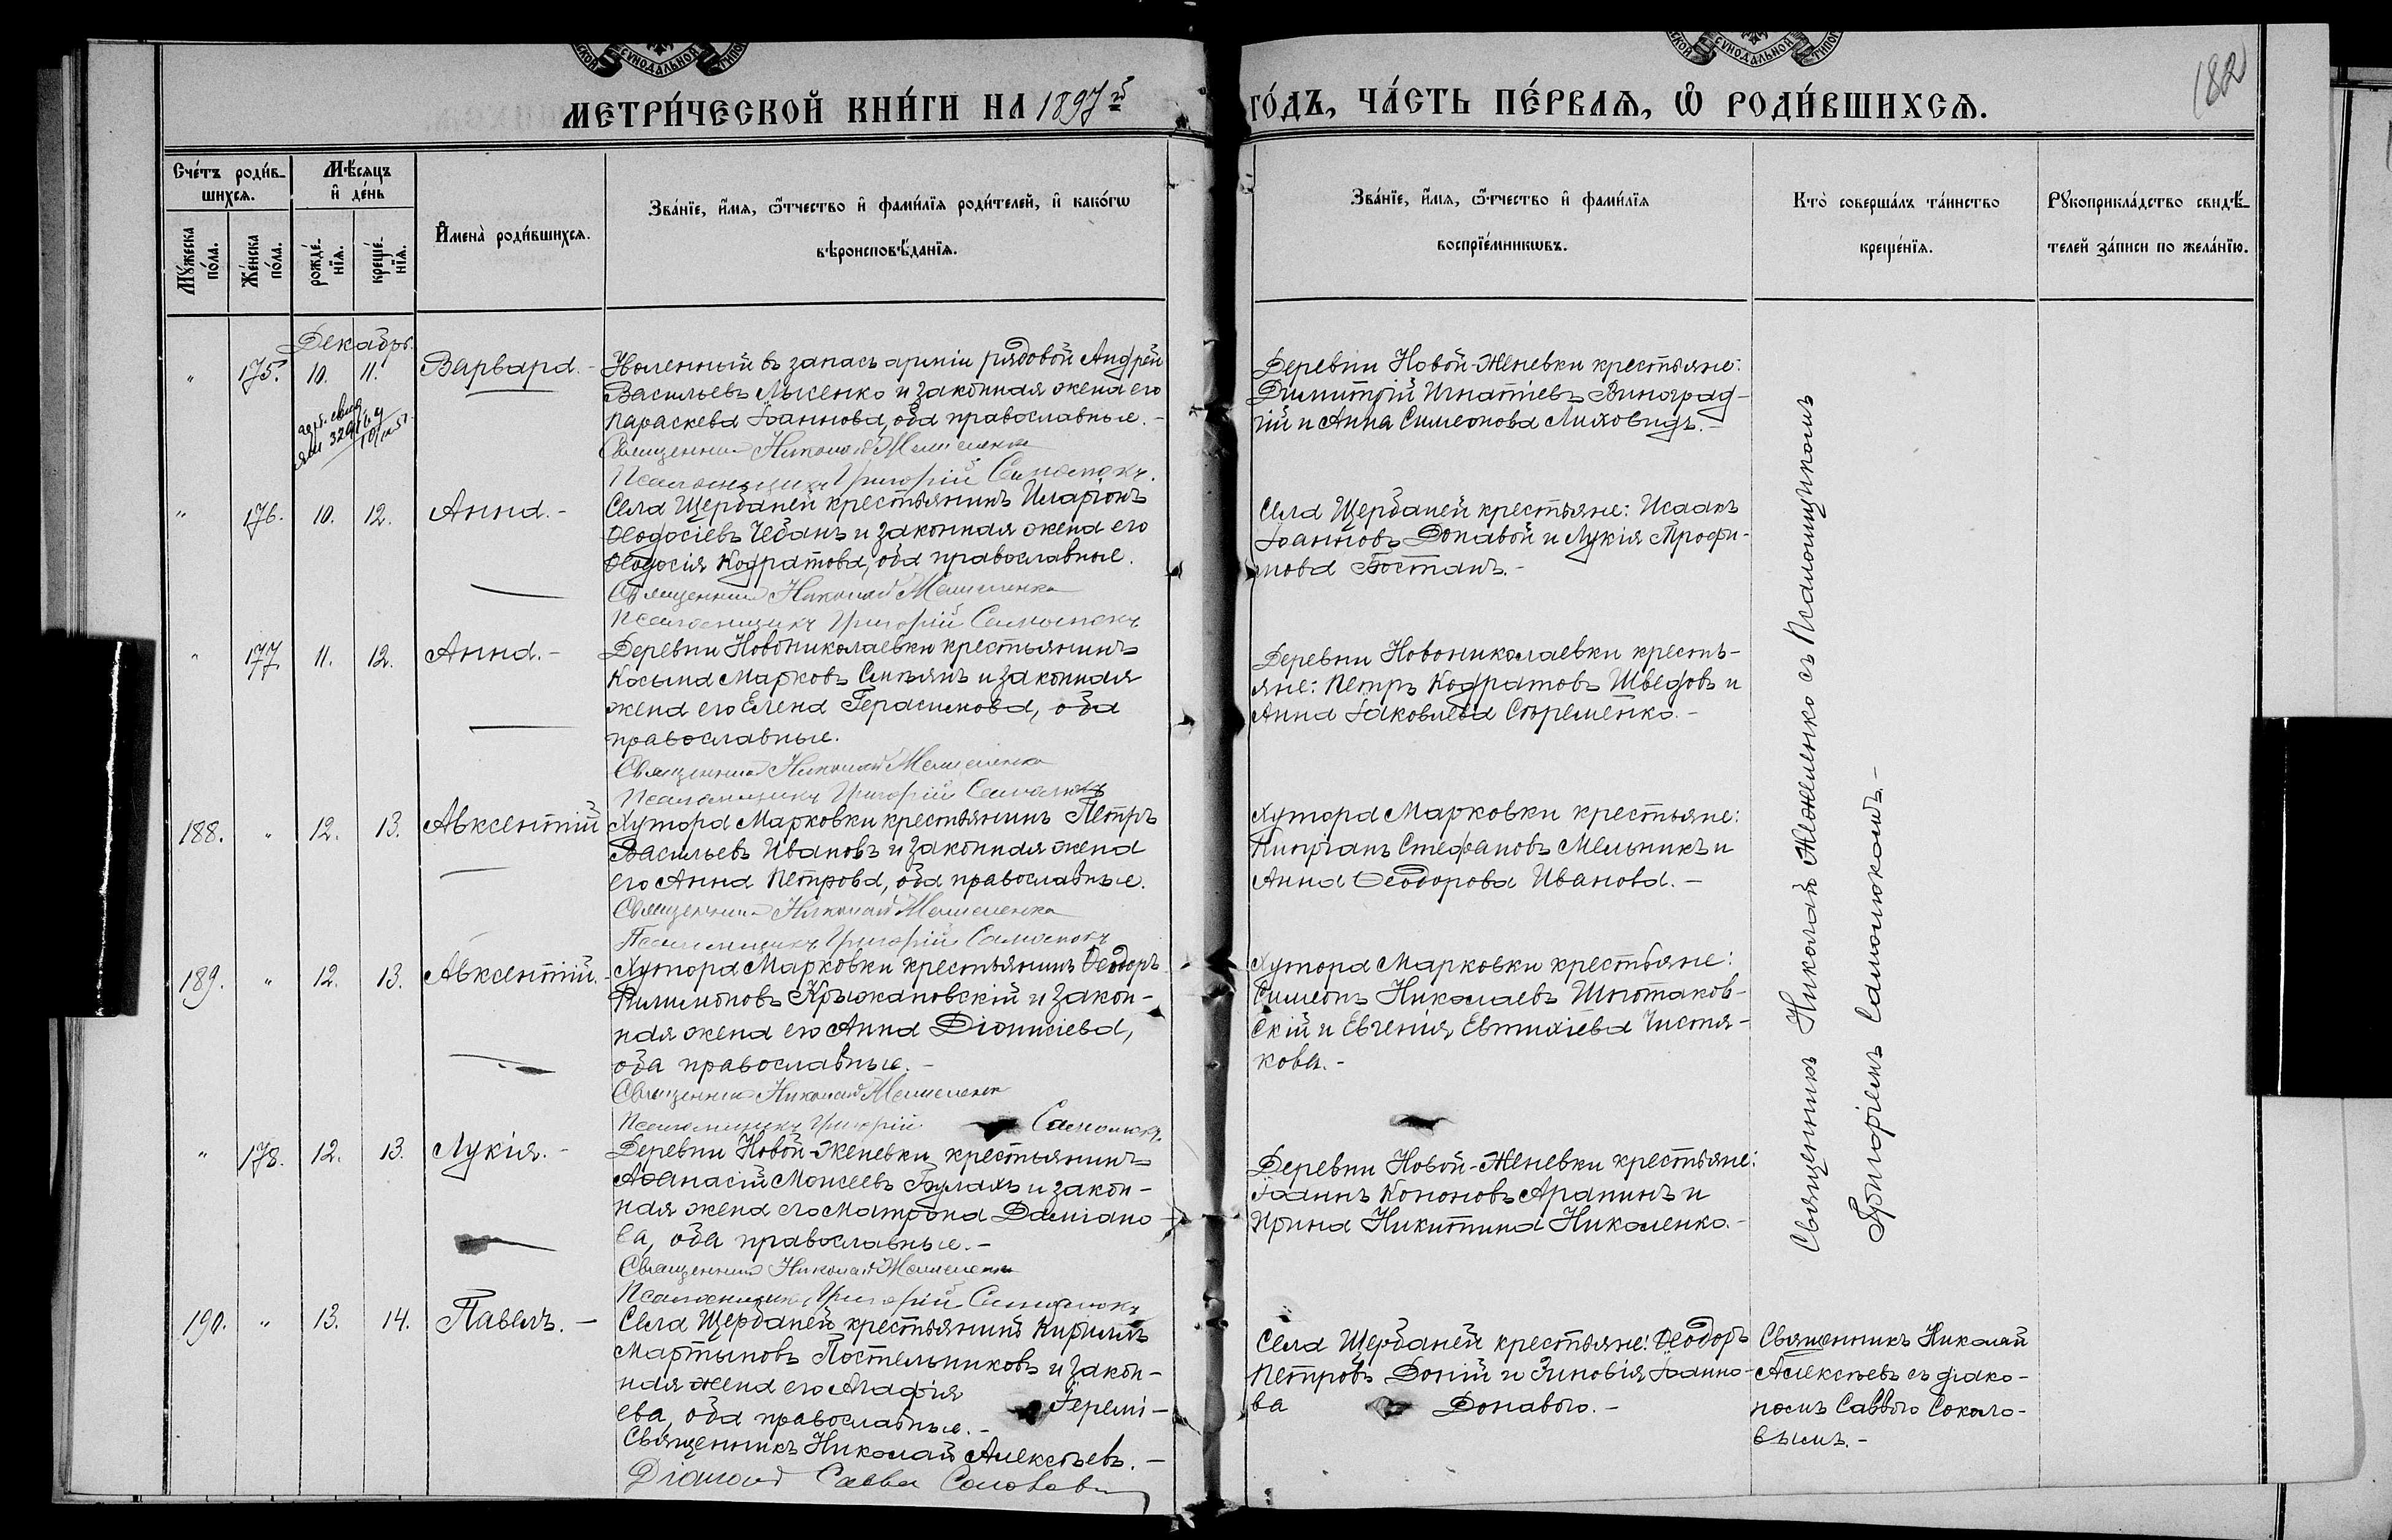 СѴНОДАЛЬНОЙ
СѴНОДАЛЬНОЙ
182
МЕТРИ́ЧЕСКОЙ КНИ́ГИ НА 1897й ГО́ДЪ, ЧА́СТЬ ПЕ́РВАѦ, Ѿ РОДИ́ВШИХСѦ.
Сче́тъ роди́в-
шихсѧ.
Мꙋжеска по́ла.
Же́нска по́ла.
Мѣ́сяцъ
и҆ де́нь
рожде́-
нїѧ.
креще́-
нїѧ.
И҆мена̀ роди́вшихсѧ.
Зва́нїе, и҆́мѧ, ѻ҆́тчество и҆ фами́лїѧ роди́телей, и҆ како́гѡ
вѣроисповѣ́данїѧ.
Зва́нїе, и҆́мѧ, ѻ҆́тчество и҆ фами́лїѧ
воспрїе́мникѡвъ.
Кто̀ соверша́лъ та́инство
креще́нїѧ.
Рꙋкоприкла́дство свидѣ́-
телей за́писи по жела́нїю.
Декабрь.
" 175. 10. 11. Варвара. - Уволенный въ запасъ арміи рядовой Андрей
Васильевъ Лысенко и законная жена его
Параскева Іоаннова, оба православные. -
Священникъ Николай
Псаломщикъ Григорій Самолюкъ.
Деревни Новой-Женевки крестьяне:
Димитрій Игнатіевъ Виноград-
ій и Анна Симеонова Лиховидъ. -
" 176. 10. 12. Анна. - Села Щербаней крестьянинъ Иларіонъ
Ѳеодосіевъ Чебанъ и законная жена его
Ѳеодосія Кодратова, оба православные.
Священникъ Николай
Псаломщикъ Григорій Самолюкъ
Села Щербаней крестьяне: Исаакъ
Іоанновъ Донавой и Лукія Трофи-
мова Бостанъ. -
" 177. 11. 12. Анна. - Деревни Новониколаевки крестьянинъ
Косьма Марковъ и законная
жена его Елена Герасимова, оба
православные.
Священникъ Николай
Псаломщикъ Григорій Самолюкъ
Деревни Новониколаевки кресть-
яне: Петръ Кодратовъ Шведовъ и
Анна Іаковлева -
188. " 12. 13. Авксентій Хутора Марковки крестьянинъ Петръ
Васильевъ Ивановъ и законная жена
его Анна Петрова, оба православные.
Священникъ Николай
Псаломщикъ Григорій Самолюкъ
Хутора Марковки крестьяне:
Кипріанъ Стефановъ Мельникъ и
Анна Ѳеодорова Иванова. -
189. " 12. 13. Авксентій. - Хутора Марковки крестьянинъ Ѳеодоръ
Филимоновъ Крыжановскій и закон-
ная жена его Анна Діонисіева,
оба православные. -
Священникъ Николай
Псаломщикъ Григорій Самолюкъ.
Хутора Марковки крестьяне:
Симеонъ Николаевъ
скій и Евгенія Евтихіева Чистя-
кова. -
" 178. 12. 13. Лукія. - Деревни Новой-Женевки крестьянинъ
Аѳанасій Моисеевъ Булахъ и закон-
ная жена его Матрона Даміано-
ва, оба православные. -
Священникъ Николай
Псаломщикъ Григорій Самолюкъ
Деревни Новой-Женевки крестьяне:
Іоаннъ Кононовъ Арапинъ и
Ирина Никитина Николенко. -
Священникъ Николай Межеленко съ Псаломщикомъ
Григоріемъ Самолюкомъ. -
190. " 13. 14. Павелъ. - Села Щербаней крестьянинъ Кириллъ
Мартыновъ Постельниковъ и закон-
ная жена его Агафія Іеремі-
ева, оба православные. -
Священникъ Николай Алексѣевъ. -
Діаконъ Савва Соколовъ
Села Щербаней крестьяне: Ѳеодоръ
Петровъ Доній и Зиновія Іоанно-
ва Донавого. -
Священникъ Николай
Алексѣевъ съ діако-
номъ Саввою Соколо-
вымъ. -